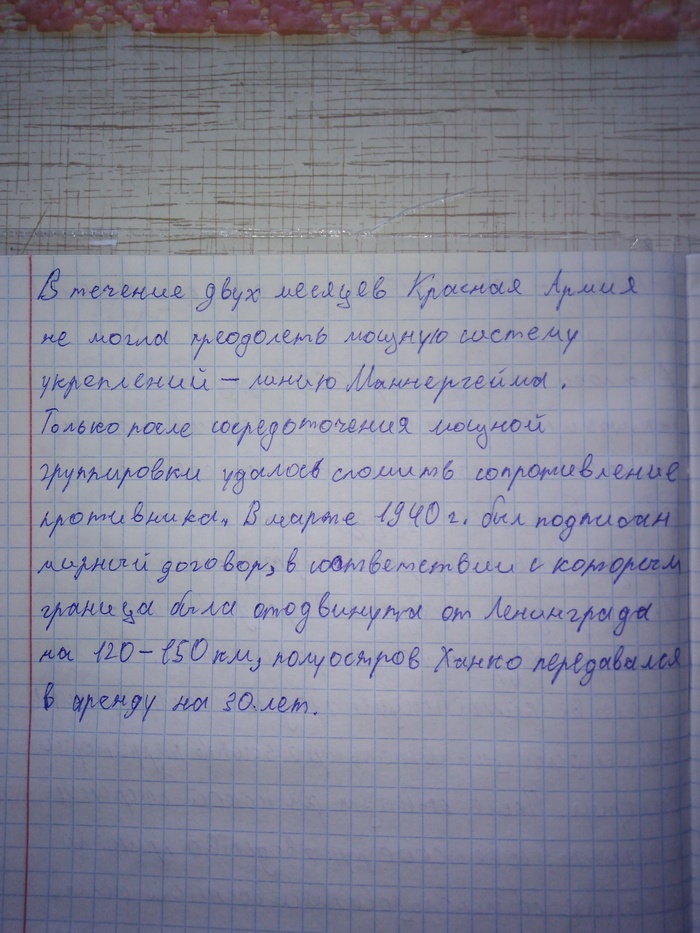 В течение двух месяцев Красная Армия
не могла преодолеть мощную систему
укреплений – линию Маннергейма.
Только после сосредоточения мощной
группировки удалось сломить сопротивление
противника. В марте 1940 г. был подписан
мирный договор, в соответствии с которым
граница была отодвинута от Ленинграда
на 120-150 км, полуостров Ханко передавался
в аренду на 30 лет.